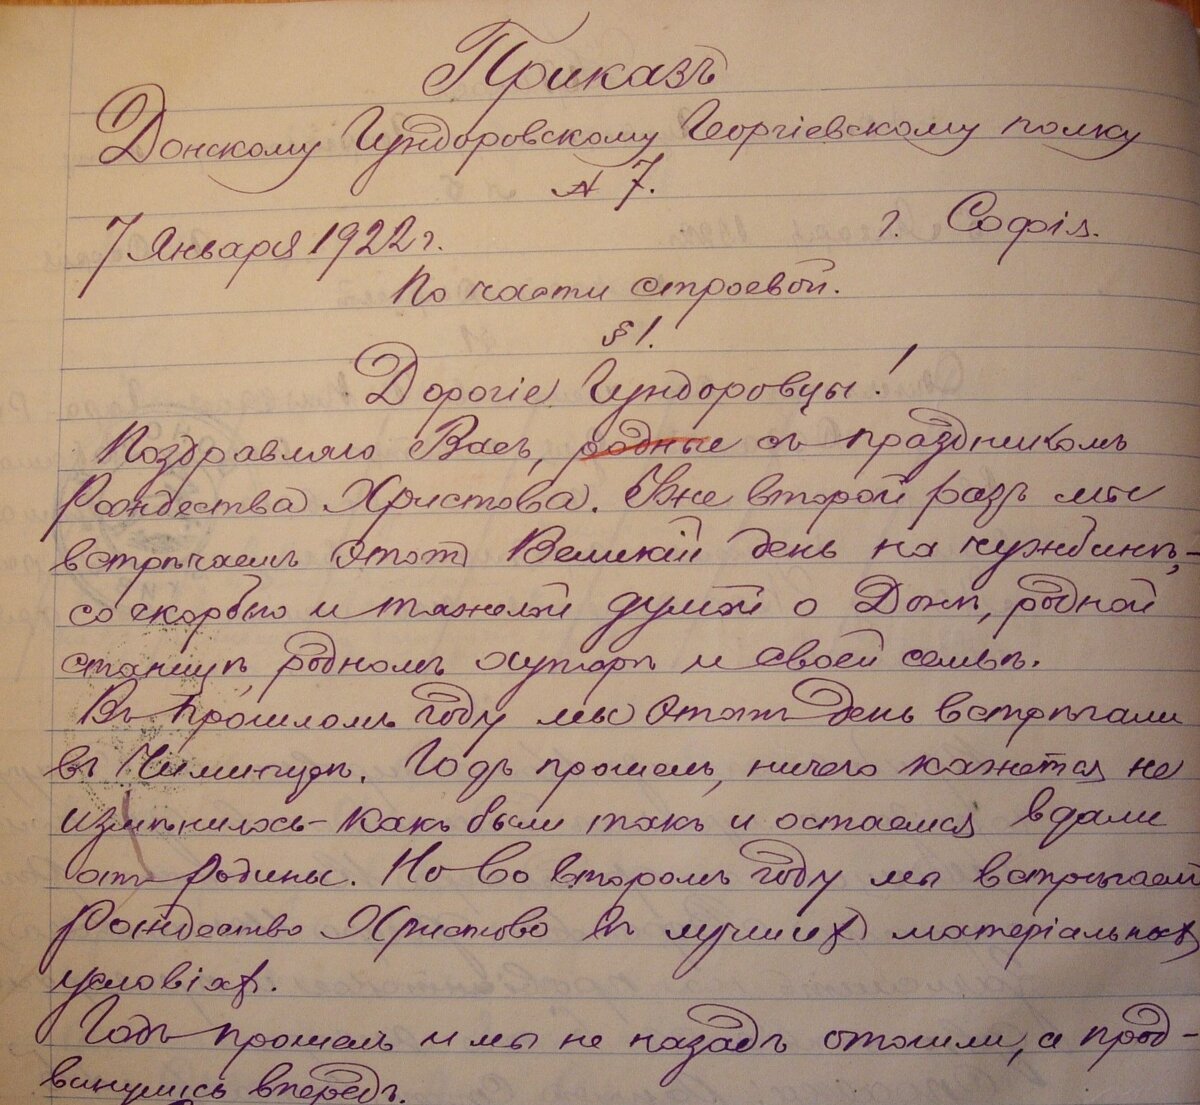 Приказъ
Донскому Гундоровскому Георгіевскому полку
№ 7.
7 Января 1922 г. г. Софія.
По части строевой.
§ 1.
Дорогіе Гундоровцы!
Поздравляю Васъ, родные съ праздникомъ
Рождества Христова. Уже второй разъ мы
встрѣчаемъ этотъ Великій день на чужбинѣ,-
со скорбью и тяжелой думой о Донѣ, родной
станицѣ, родномъ хуторѣ и своей семьѣ.
Въ прошломъ году мы этотъ день встрѣчали
въ Чилингирѣ. Годъ прошелъ, ничего кажется не
измѣнилось - какъ были такъ и остаемся вдали
отъ Родины. Но во второмъ году мы встрѣчаем
Рождество Христово въ лучших матеріальных
условіях.
Годъ прошелъ и мы не назадъ отошли, а прод-
винулись впередъ.